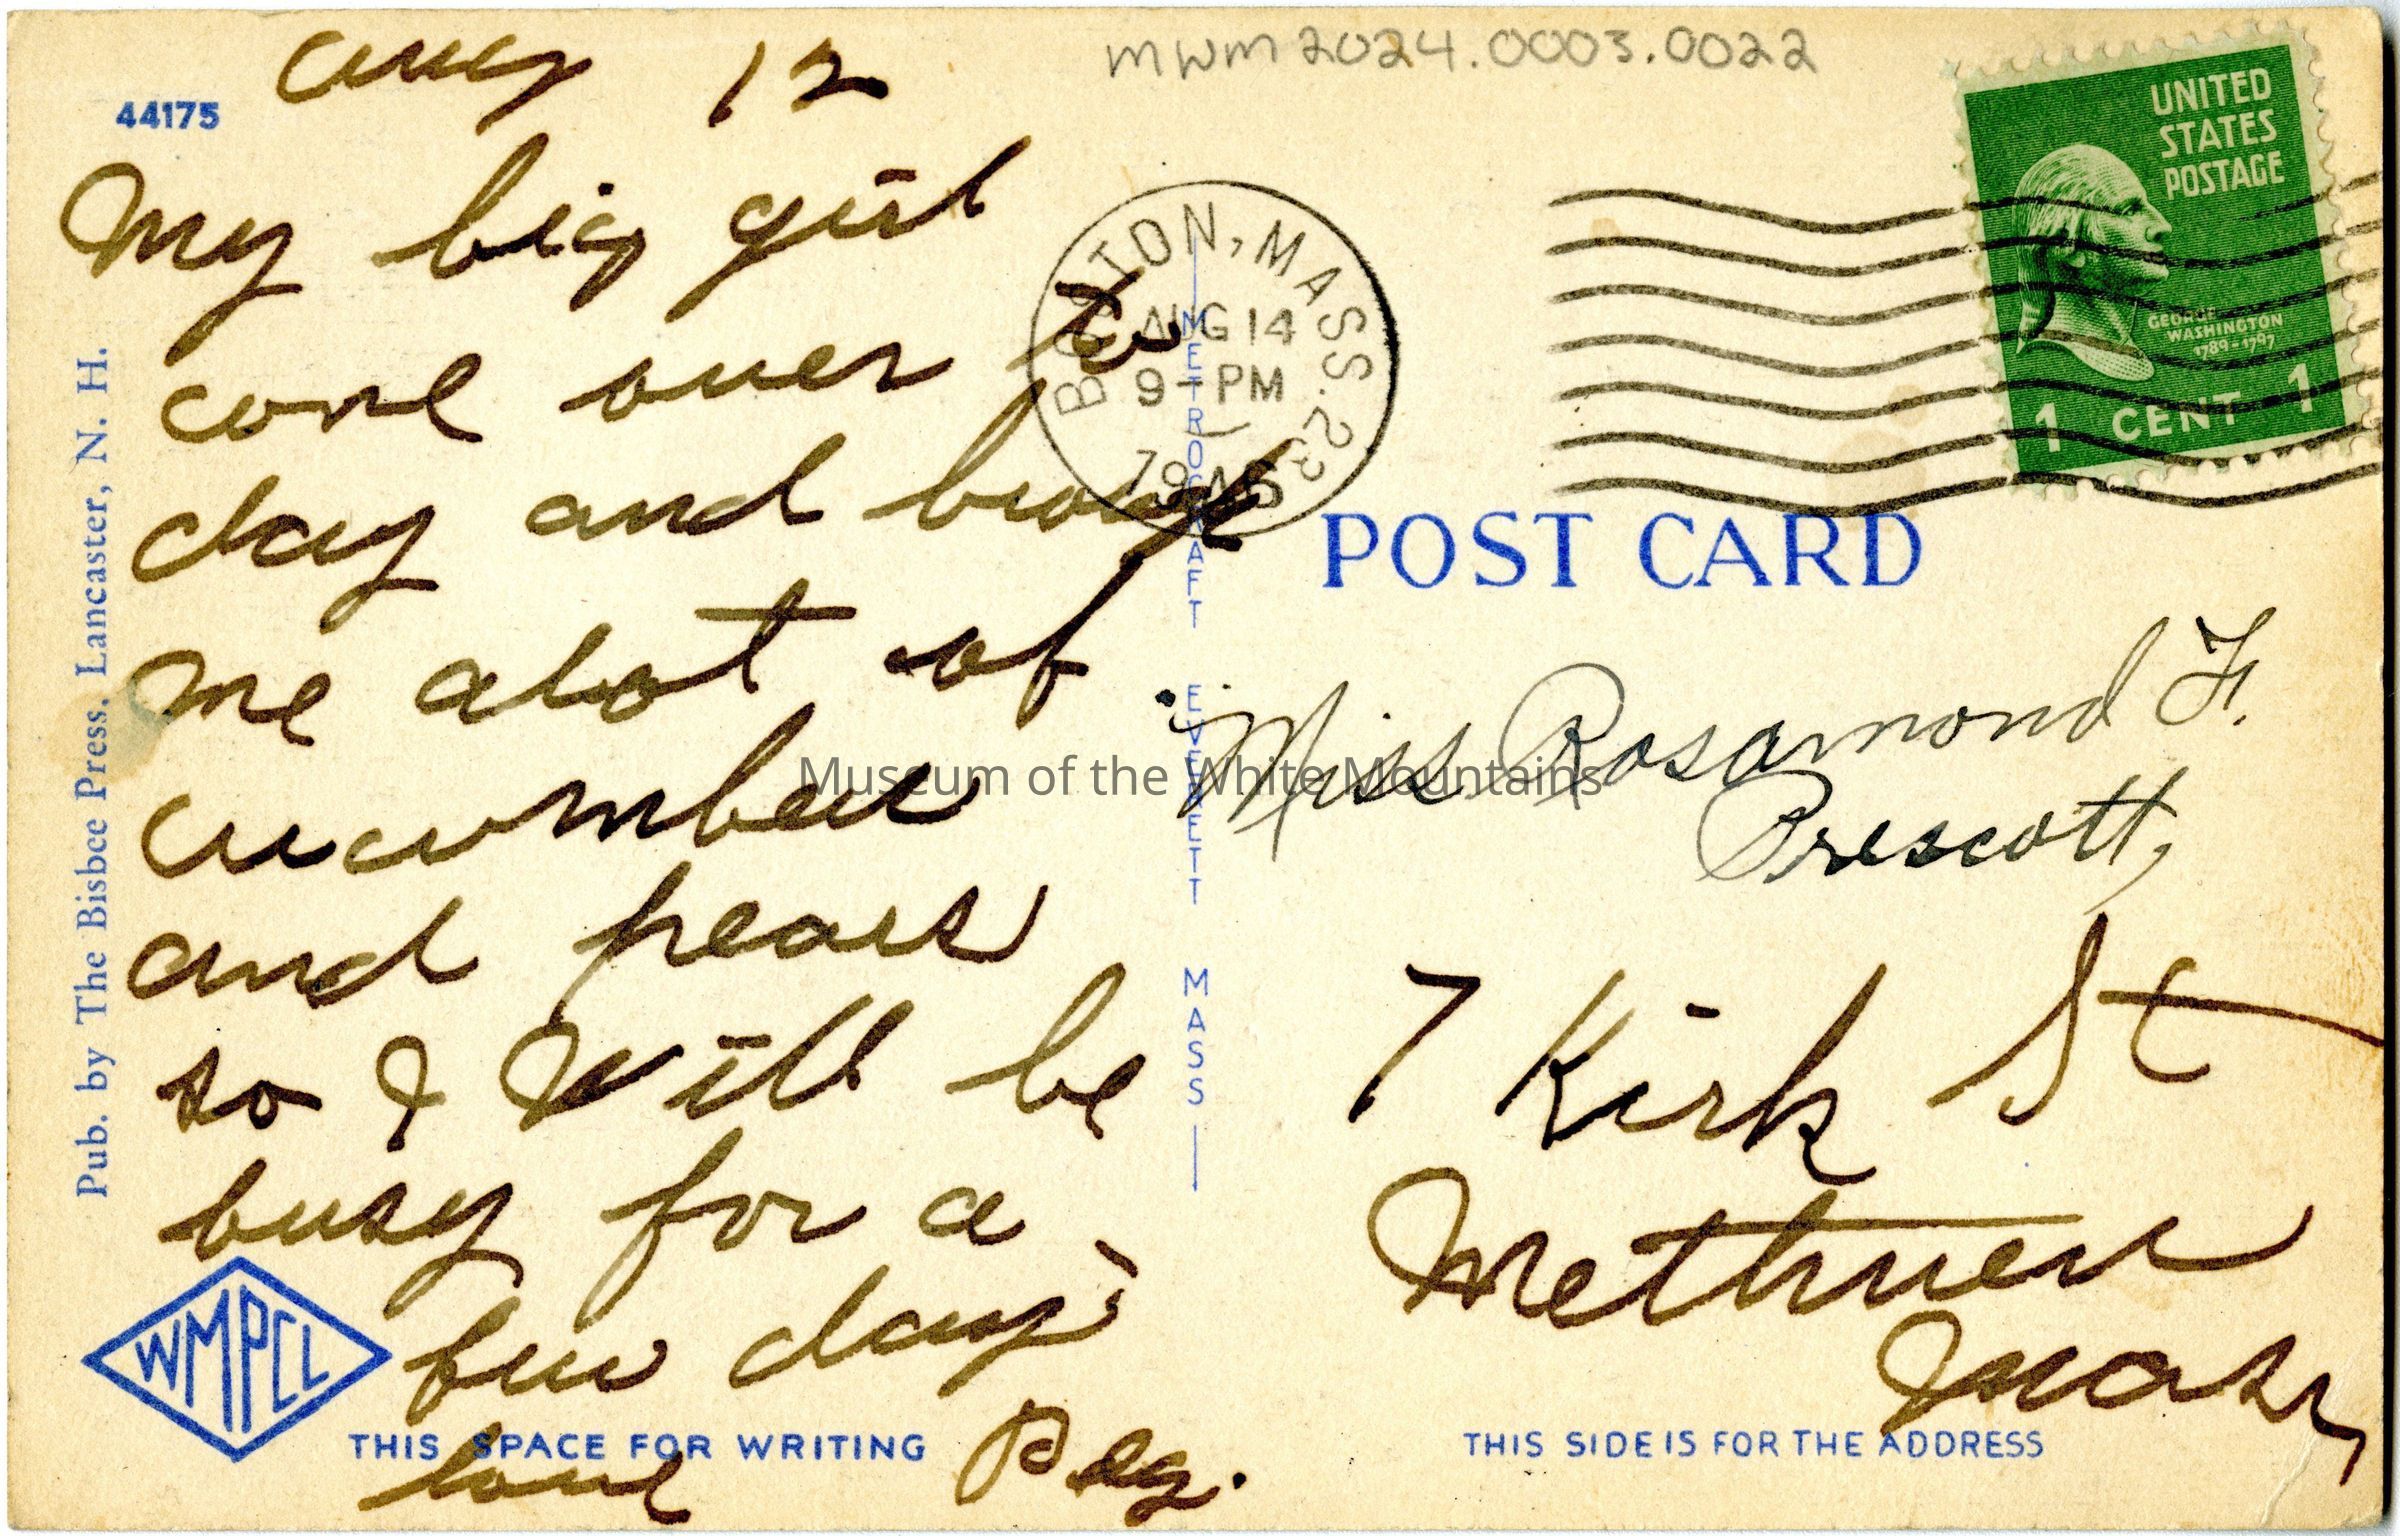 Aug 12
MWM 2024.0003.0022
44175
My big girl
come over to
day and
me alot of
cucumber
and pears
so I will be
busy for a
few days
love Peg.
Pub. by The Bisbee Press, Lancaster, N. H.
WMPCL
THIS SPACE FOR WRITING
METROCRAFT EVERETT MASS
BOSTON, MASS. 23
AUG 14
9 - PM
UNITED
STATES
POSTAGE
GEORGE
WASHINGTON
1789-1797
1 CENT 1
POST CARD
Miss Rosamond F.
Prescott,
7 Kirk St
Methuen
Mass
THIS SIDE IS FOR THE ADDRESS
Museum of the White Mountains